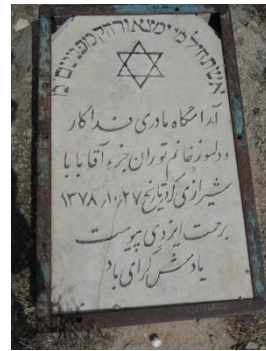 אשת חיל מי ימצא ורחק מפנינים מ
آرامگاه مادری فداکار
و دلسوز خانم توران جزء آقابابا
شیرازی که تاریخ ۲۷ر۱۰ر۱۳۷۸
برحمت ایزدی پیوست
یادش گرامی باد